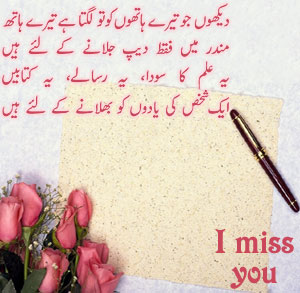 دیکھوں جو تیرے ہاتھوں کو تو لگتا ہے تیرے ہاتھ
مندر میں فقط دیپ جلانے کے لئے ہیں
یہ علم کا سودا، یہ رسالے، یہ کتابیں
ایک شخص کی یادوں کو بھلانے کے لئے ہیں
I miss
you